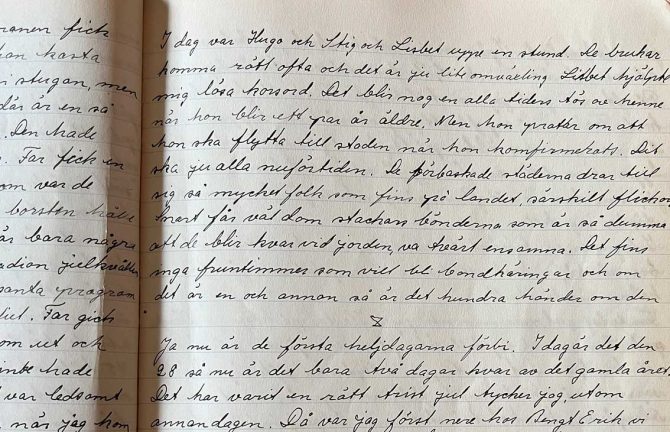 ranen fick
on kasta
i stugan, men
där är en så
. Den hade
. Far fick en
om var de
borsten
är bara några
santa program
lut. Far gick
om ut och
hade
var ledsamt
när jag kom
I dag var Hugo och Stig och Lisbet uppe en stund. De brukar
komma rätt ofta och det är ju lite omväxling Lisbet hjälpte
mig lösa korsord. Det blir nog en alla tiders tös av henne
när hon blir ett par år äldre. Men hon pratar om att
hon ska flytta till staden när hon komfirmerats. Dit
ska ju alla nuförtiden. De förbaskade städerna drar till
sig så mycket folk som fins på landet, särskilt flickor
Snart får väl dom stackars bönderna som är så dumma
att de blir kvar vid jorden, va tvärt ensamma. Det fins
inga fruntimmer som vill bli bondkäringar och om
det är en och annan så är det hundra händer om den
Ja nu är de första heljdagarna förbi. I dag är det den
28 så nu är det bara två dagar kvar av det gamla året.
Det har varit en rätt trist jul tycker jag, utom
annandagen. Då var jag först nere hos Bengt Erik vi